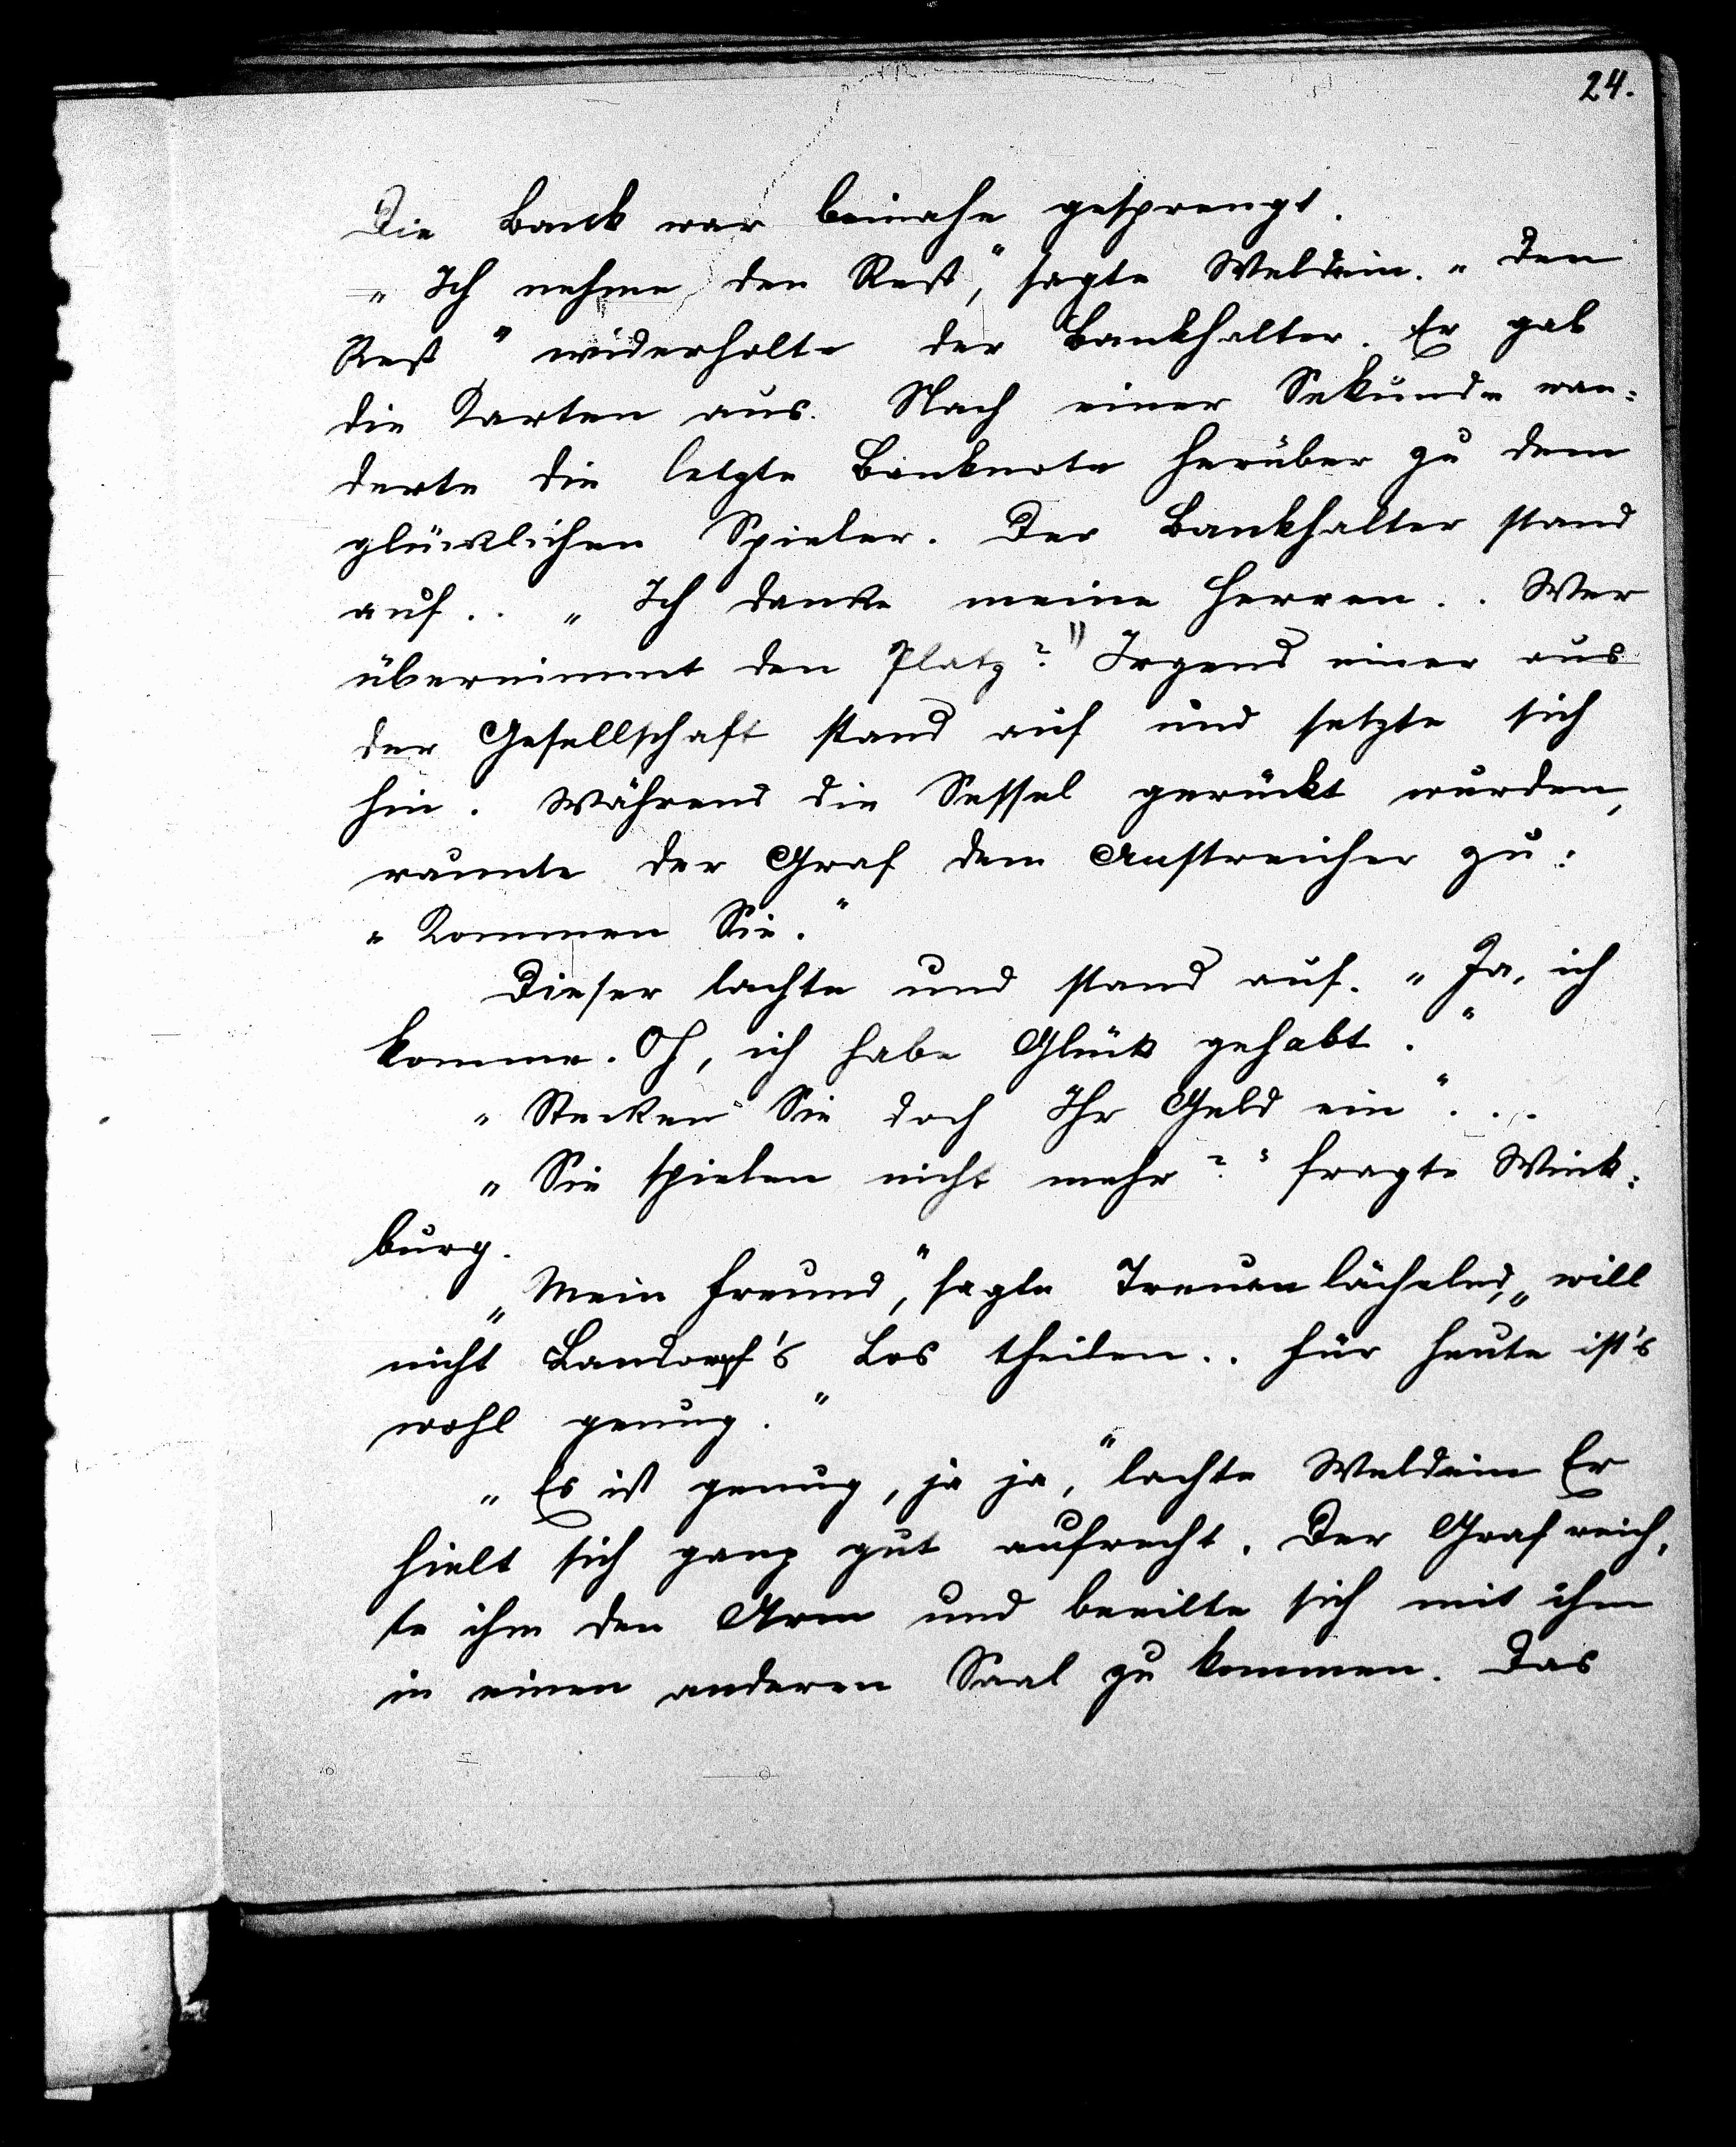 24.
Die Bank war beinahe gesprengt.
„Ich nehme den Rest,“ sagte Weldein. „Den
Rest“ widerholte der Bankhalter. Er gab
die Karten aus. Nach einer Sekunde wan=
derte die letzte Banknote herüber zu dem
glücklichen Spieler. Der Bankhalter stand
auf.. „Ich danke meine Herren.. Wer
übernimmt den Platz?“ Irgend einer aus
der Gesellschaft stand auf und setzte sich
hin. Während die Sessel gerückt wurden,
raunte der Graf dem Anstreicher zu:
„Kommen Sie.“
Dieser lachte und stand auf. „Ja, ich
komme. Oh, ich habe Glück gehabt.“
„Stecken Sie doch Ihr Geld ein“...
„Sie spielen nicht mehr?“ fragte Wink=
burg.
„Mein Freund,“ sagte Treuen lächelnd, „will
nicht Bandorf's Los theilen.. Für heute ist's
wohl genug.“
„Es ist genug, ja ja,“ lachte Weldein Er
hielt sich ganz gut aufrecht. Der Graf reich=
te ihm den Arm und beeilte sich mit ihm
in einen anderen Saal zu kommen. Das